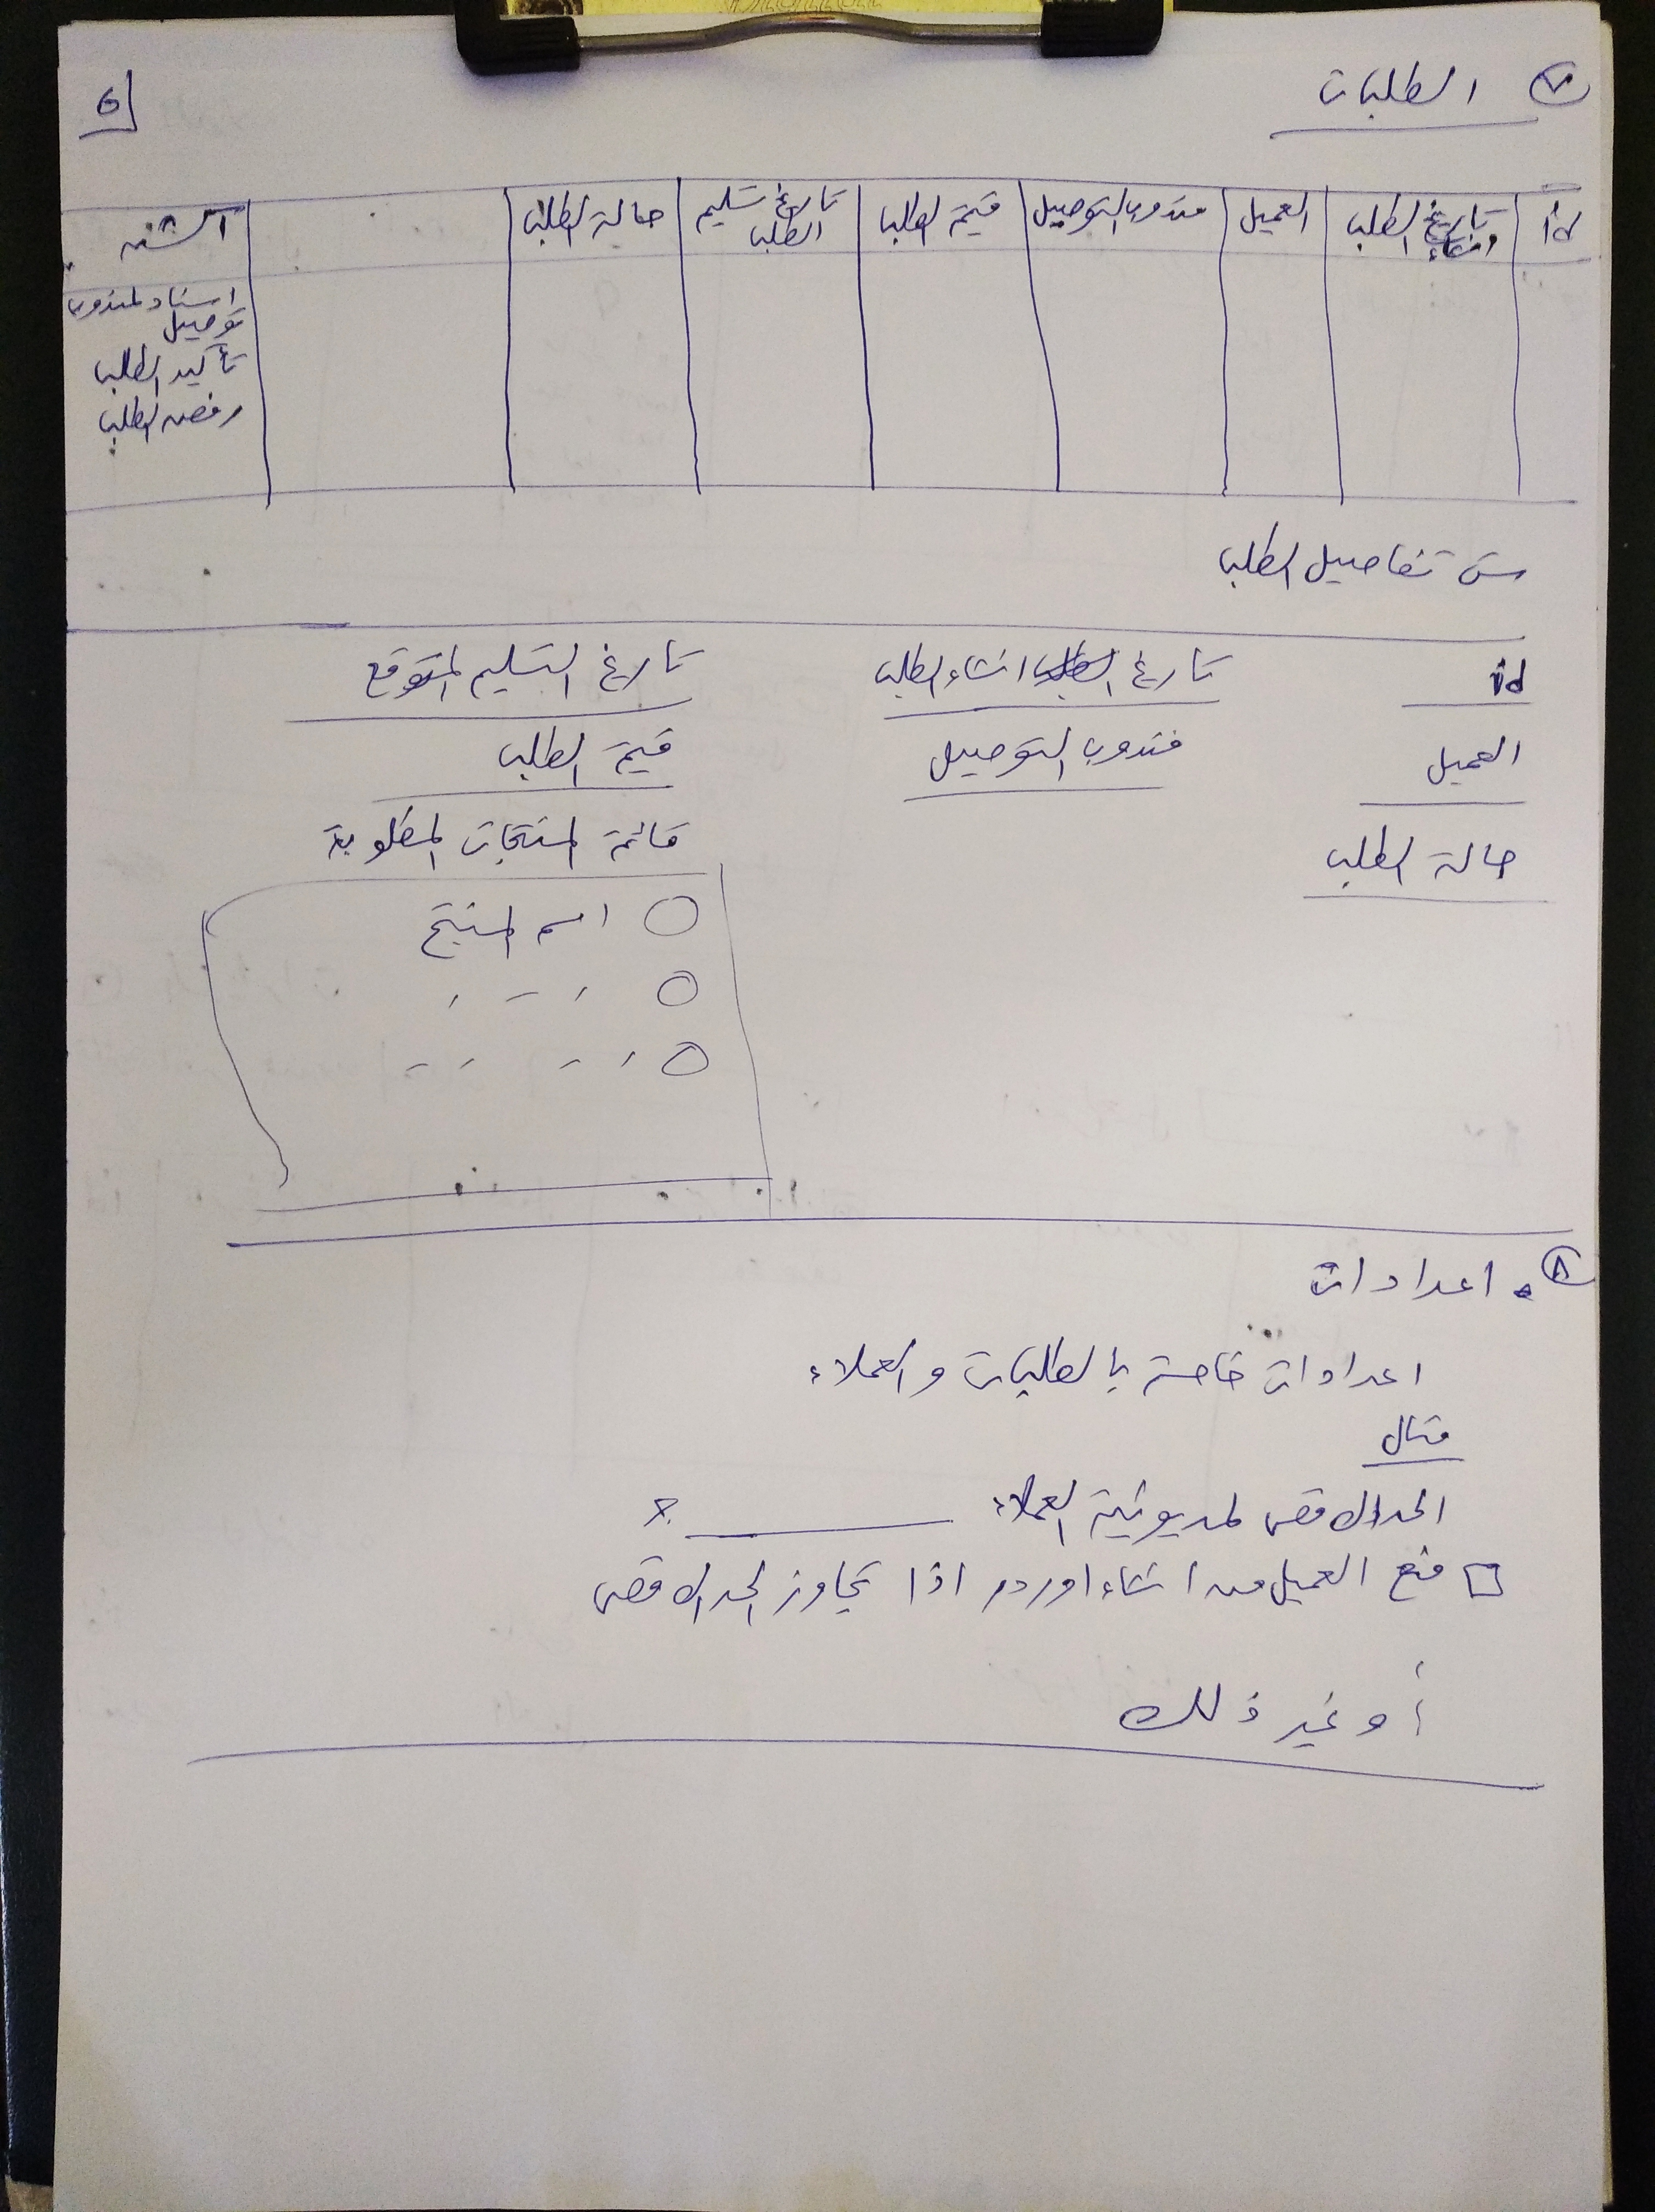 ٧ الطلبات
6
id
تاريخ انشاء الطلب
العميل
مندوب التوصيل
قيمة الطلب
تاريخ تسليم الطلب
حالة الطلب
اسناد لمندوب
توصيل
تأكيد الطلب
رفض الطلب
تفاصيل الطلب
id تاريخ انشاء الطلب تاريخ التسليم المتوقع
العميل مندوب التوصيل قيمة الطلب
حالة الطلب قائمة المنتجات المطلوبة
اسم المنتج
٨ اعدادات
اعدادات خاصة بالطلبات و العملاء
مثال
الحد الاقصى لمديونية العملاء
منع العميل من انشاء اوردر اذا تجاوز الحد الاقصى
أو غير ذلك